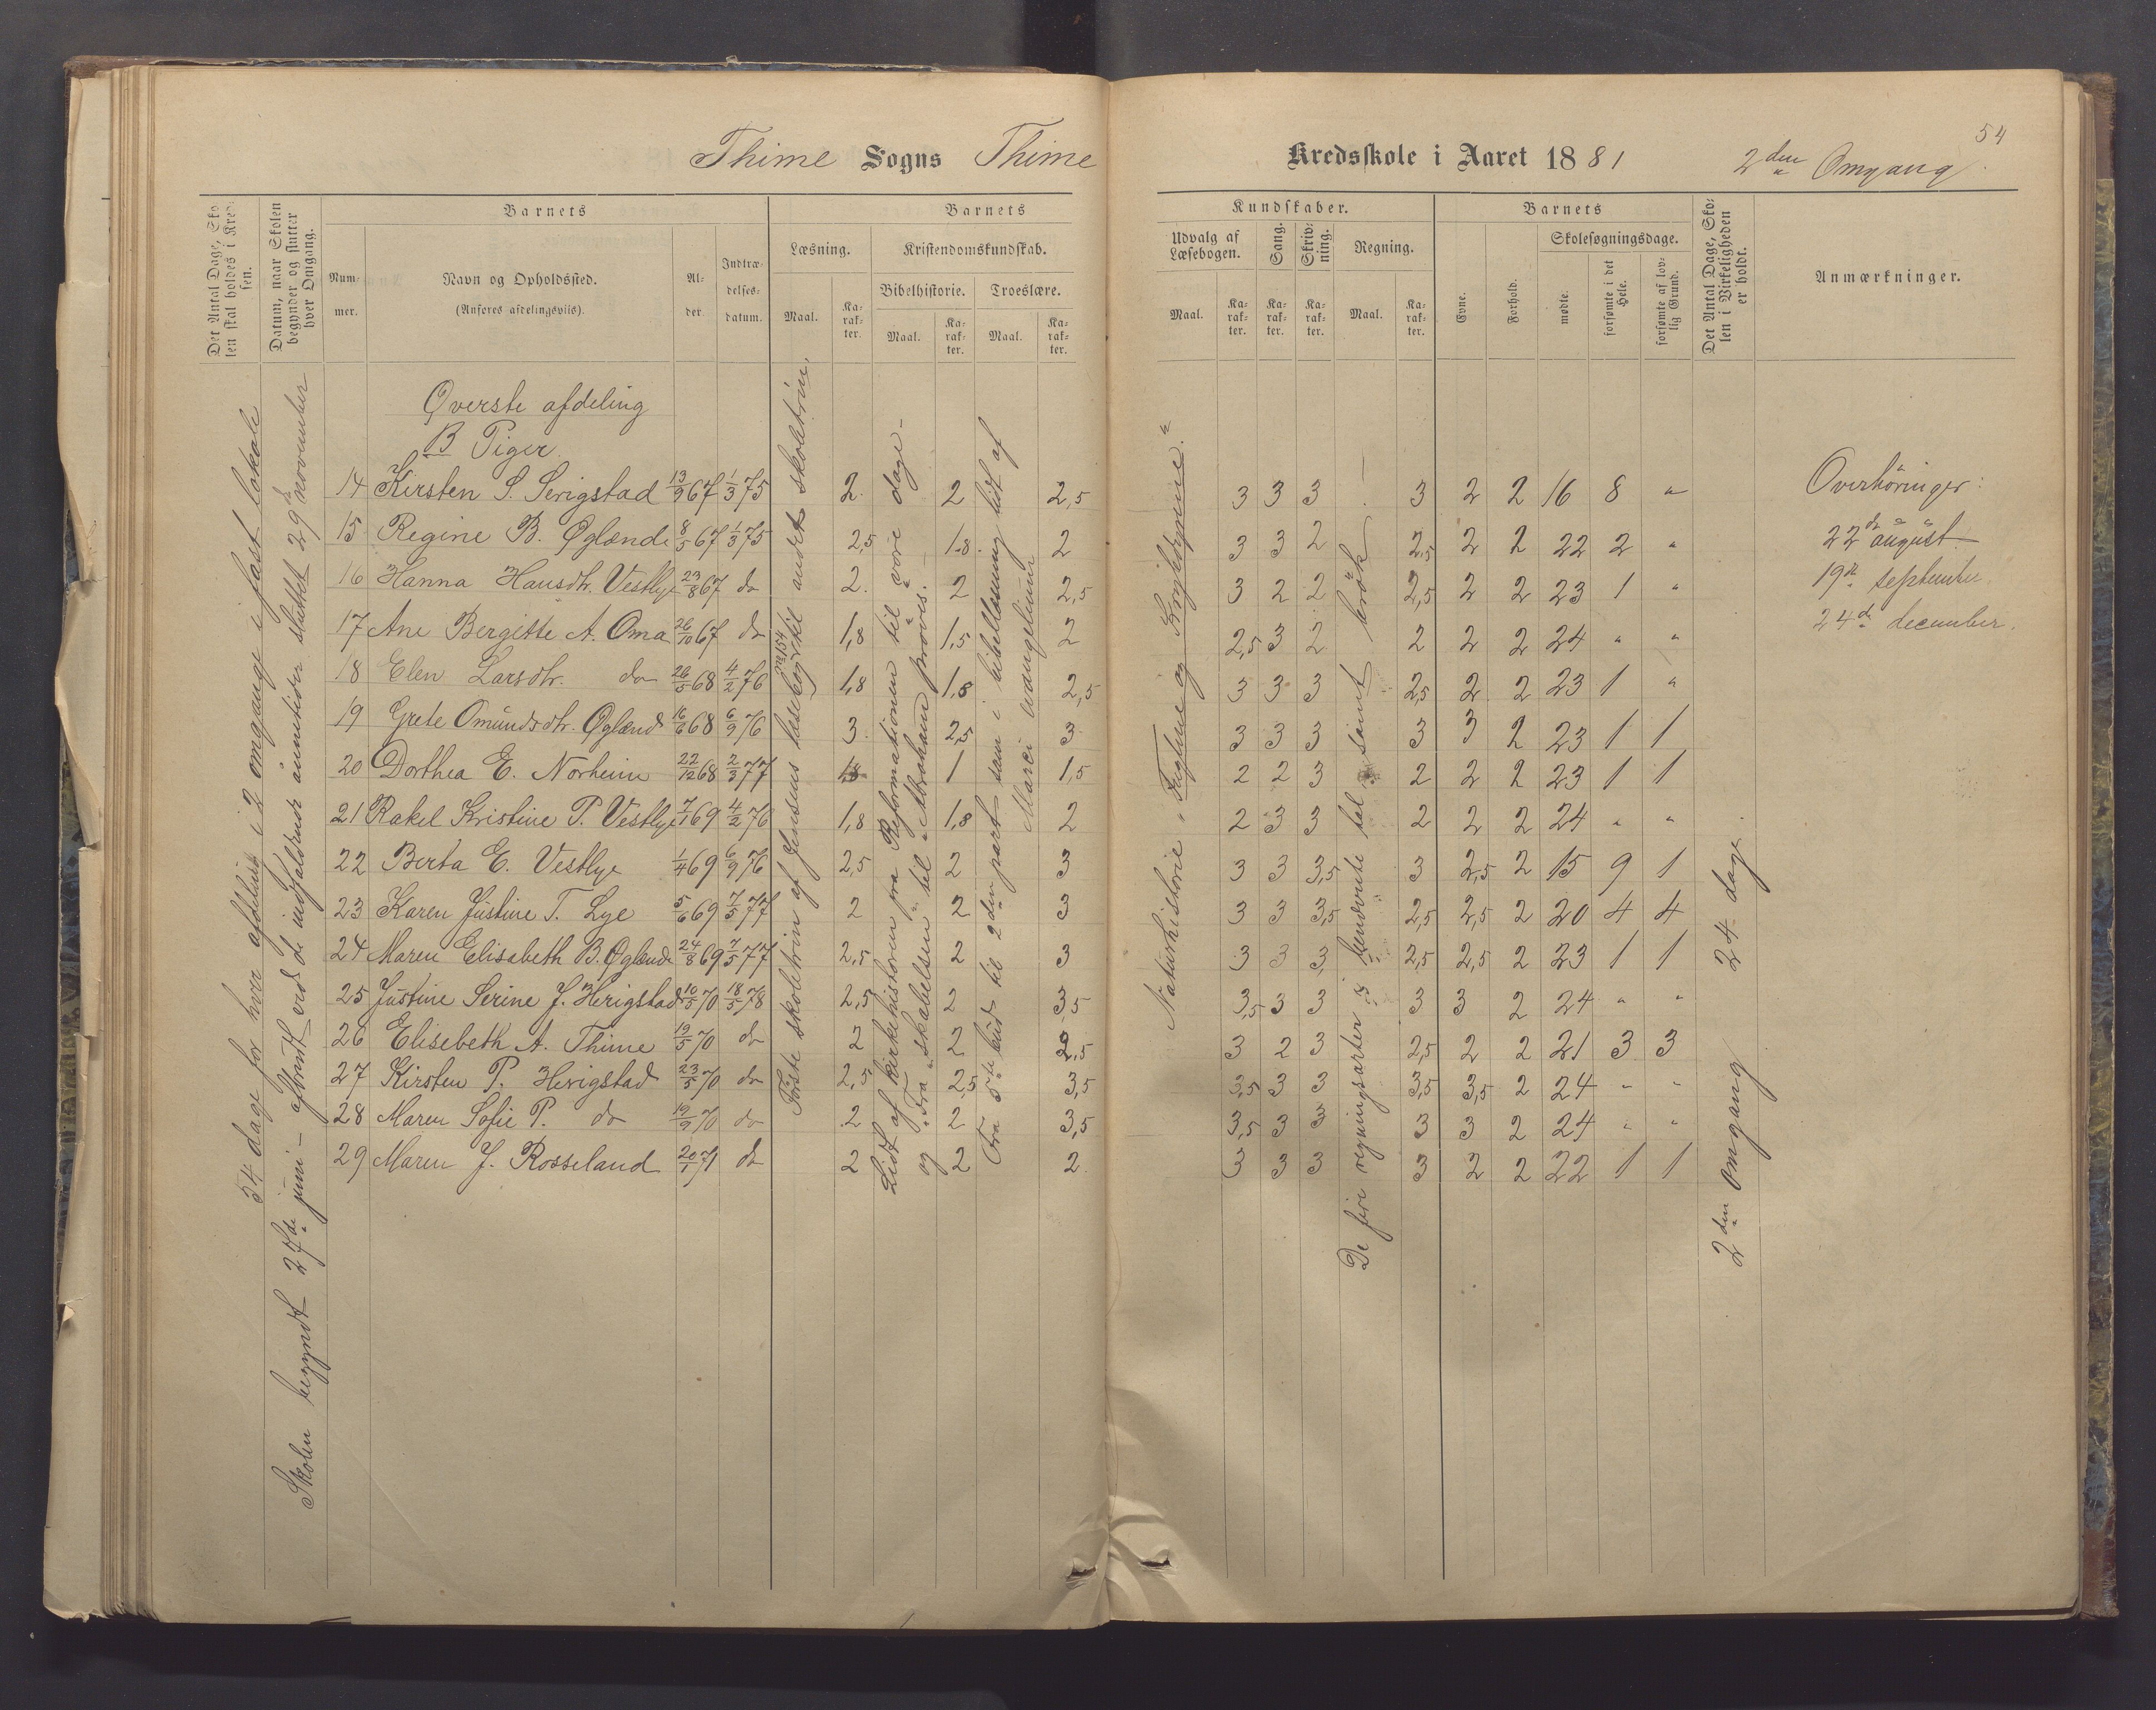 54
Thime Sogns Thime Kredsskole i Aaret 1881 2den Omgang.
Det Antal Dage, Skolen skal holdes i Kredsen.
Datum, naar Skolen begynder og slutter hver Omgang.
Barnets
Nummer.
Navn og Opholdssted.
(Anføres afdelingsviis).
Alder.
Indtrædelsesdatum.
Barnets
Læsning.
Kristendomskundskab.
Bibelhistorie. Troeslære.
Maal. Karakter. Maal. Karakter. Maal. Karakter.
Kundskaber.
Udvalg af Læsebogen. Sang. Skrivning. Regning.
Maal. Karakter. Karakter. Karakter. Maal. Karakter.
Barnets
Evne. Forhold. Skolesøgningsdage.
mødte. forsømte i det Hele. forsømte af lovlig Grund.
Det Antal Dage, Skolen i Virkeligheden er holdt.
Anmærkninger.
54 dage for hver afdeling i 2 omgange i fast lokale
Skolen begyndt 27de juni – afbrudt ved de indfaldende aannetider sluttet 29de november
Øverste afdeling
B Piger.
14 Kirsten S. Serigstad 13/9 67 1/3 75 2 2 2,5 3 3 3 3 2 2 16 8 "
15 Regine B. Øglænd 8/5 67 1/3 75 2,5 1.8 2 3 3 2 2,5 2 2 22 2 "
16 Hanna Hansdtr. Vestlye 23/8 67 do 2 2 2,5 3 2 2 2,5 2 2 23 1 "
17 Ane Bergitte A. Oma 26/10 67 do 1,8 1,5 2 2,5 3 2 2 2 2 24 " "
18 Elen Larsdtr. do 26/5 68 4/2 76 1,8 1,8 2,5 3 3 3 2,5 2 2 23 1 "
19 Grete Omundsdtr. Øglænd 16/6 68 6/9 76 3 2,5 3 3 3 3 3 3 2 23 1 1
20 Dorthea E. Norheim 22/12 68 2/3 77 1,8 1 1,5 2 2 3 2 2 2 23 1 1
21 Rakel Kristine P. Vestlye 7/1 69 4/2 76 1,8 1,8 2 2 3 3 2 2 2 24 " "
22 Berta E. Vestlye 1/4 69 6/9 76 2,5 2 3 3 3 3,5 3 2,5 2 15 9 1
23 Karen Justine T. Lye 5/6 69 7/5 77 2 2 3 3 3 3,5 2,5 2,5 2 20 4 4
24 Maren Elisabeth B. Øglænd 24/8 69 7/5 77 2,5 2 3 3 3 3 2,5 2,5 2 23 1 1
25 Justine Serine J. Herigstad 10/5 70 18/5 78 2,5 2 3,5 3,5 3 3 3 3 2 24 " "
26 Elisebeth A. Thime 19/5 70 do 2 2 2,5 3 2 3 2,5 2 2 21 3 3
27 Kirsten P. Herigstad 23/5 70 do 2,5 2,5 3,5 3,5 3 3 3,5 3,5 2 24 " "
28 Maren Sofie P. do 19/9 70 do 2 2 3,5 3,5 3 3 3 3 2 24 " "
29 Maren J. Rosseland 20/1 71 do 2 2 2 3 3 3 3 2 2 22 1 1
Første skoletrin af Jensens læsebog til andet skoletrin.
Lidt af kirkehistorien fra Reformationen til vore dage –
og fra skabelsen til Abrahams prøvis. –
Fra 5te bud til 2den part samt i bibellæsning lidt af
Marci evangelium
Naturhistorie „Fuglene og Krybdyrene."
De fire regningsarter i benævnte tal samt brøk –
2den omgang 24 dage.
Overhøringer:
22de august
19de september.
24de december.